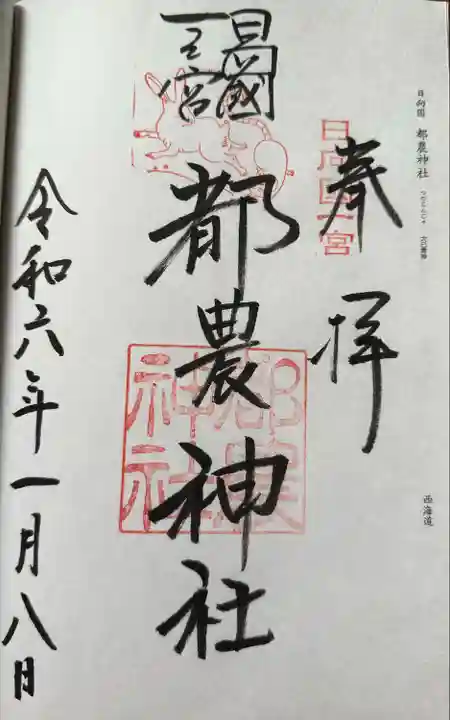 日向国 都農神社 つのじんじゃ
西海道
奉拝
日向国一宮
日向國
一之宮
都農神社
都農神社
令和六年一月八日